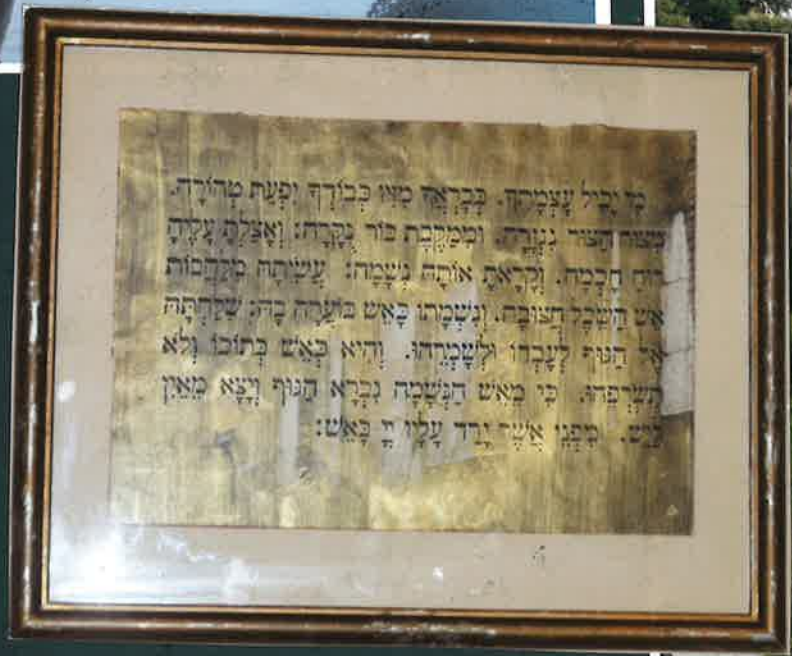 מִי יָכִיל עָצְמָתֶךָ. בְּבָרְאֲךָ מִזִּיו כְּבוֹדְךָ יִפְעַת טְהוֹרָה.
מִצּוּר הַצּוּר נִגְזְרָה. וּמִמַּקֶּבֶת בּוֹר נֻקָּרָה: וְאָצַלְתָּ עָלֶיהָ
רוּחַ חָכְמָה. וְקָרָאתָ אוֹתָהּ נְשָׁמָה: עֲשִׂיתָהּ מִלַּהֲבוֹת
אֵשׁ הַשֵּׂכֶל חֲצוּבָה. וְנִשְׁמָתוֹ כָּאֵשׁ בּוֹעֲרָה בָהּ: שִׁלַּחְתָּהּ
אֶל הַגּוּף לְעָבְדוֹ וּלְשָׁמְרֵהוּ. וְהִיא כְּאֵשׁ בְּתוֹכוֹ וְלֹא
תִשְׂרְפֵהוּ. כִּי מֵאֵשׁ הַנְּשָׁמָה נִבְרָא הַגּוּף וְיָצָא מֵאַיִן
לְיֵשׁ. מִפְּנֵי אֲשֶׁר יָרַד עָלָיו יְיָ בָּאֵשׁ: